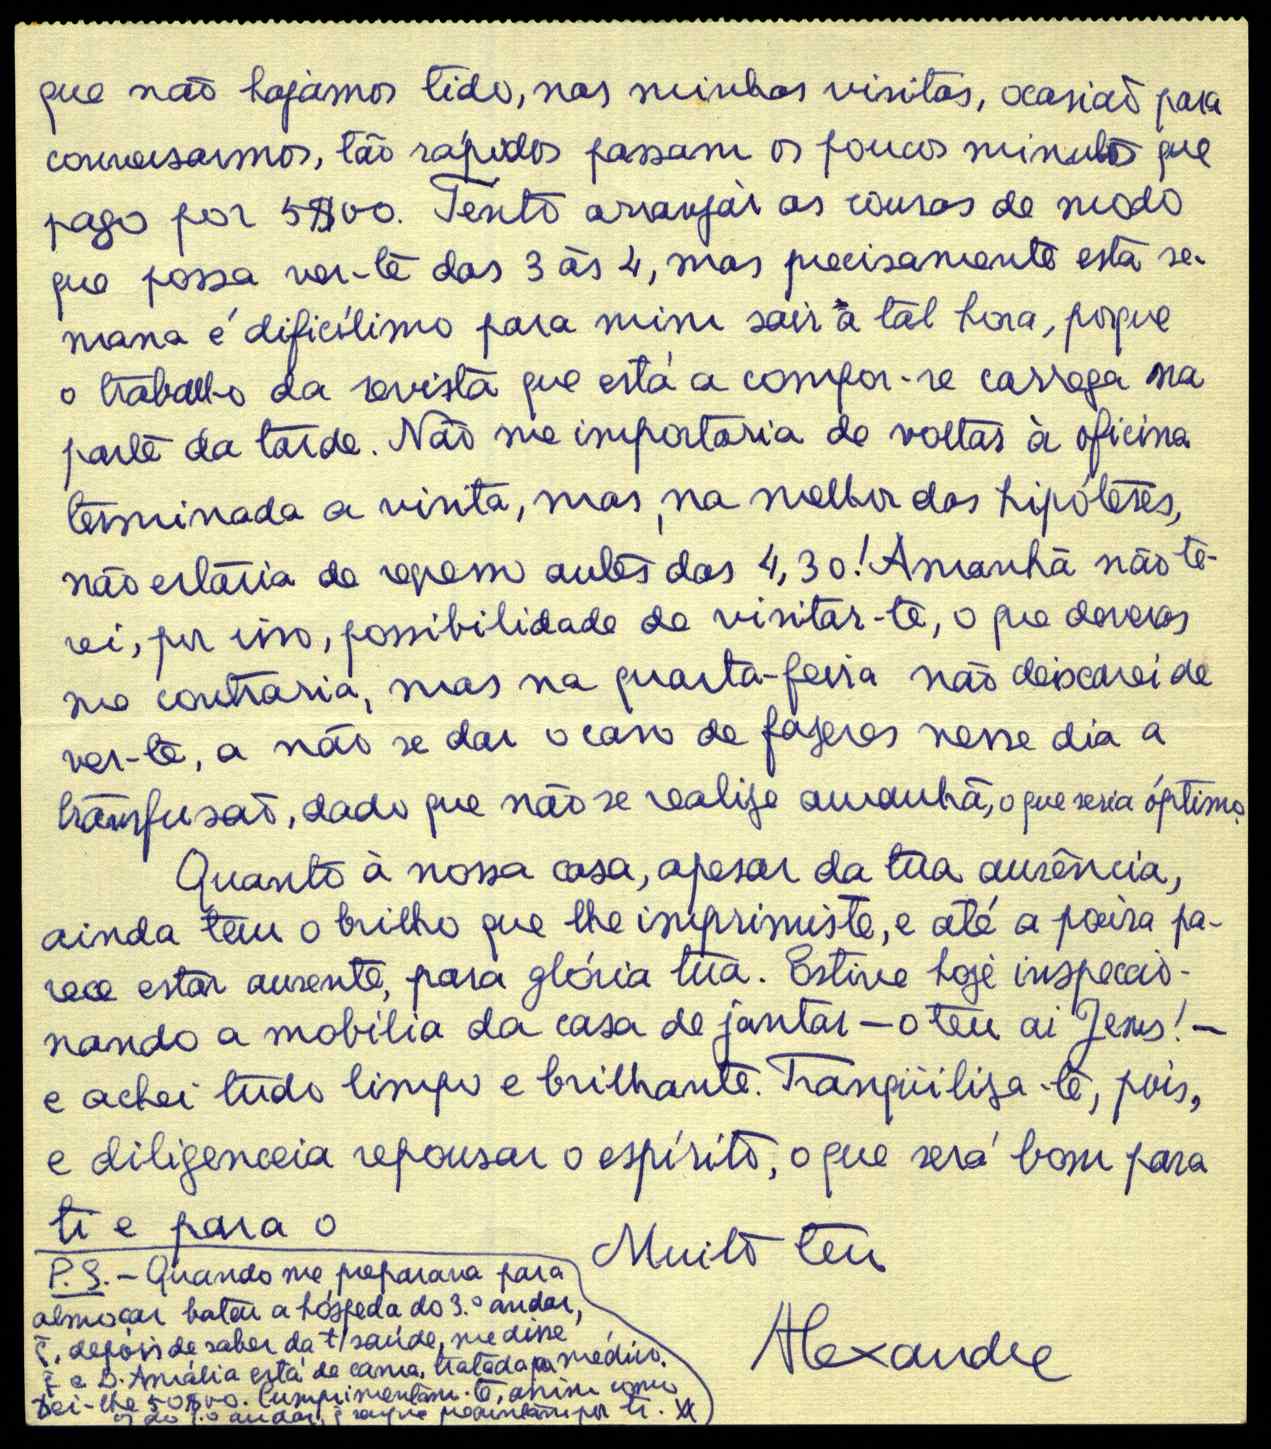 que não hajamos tido, nas minhas visitas, ocasião para
conversarmos, tão rápidos passam os poucos minutos que
pago por 5$00. Tento arranjar as cousas de modo
que possa ver-te das 3 às 4, mas precisamente esta se-
mana é dificílimo para mim sair a tal hora, porque
o trabalho da revista que está a compor-se carrega na
parte da tarde. Não me importaria de voltar à oficina
terminada a visita, mas, na melhor das hipóteses,
não estaria de regresso antes das 4,30! Amanhã não te-
rei, por isso, possibilidade de visitar-te, o que deveras
me contraria, mas na quarta-feira não deixarei de
ver-te, a não se dar o caso de fazeres nesse dia a
transfusão, dado que não se realize amanhã, o que seria óptimo.
Quanto à nossa casa, apesar da tua ausência,
ainda tem o brilho que lhe imprimiste, e até a poeira pa-
rece estar ausente, para glória tua. Estive hoje inspeccio-
nando a mobília da casa de jantar — o teu ai Jesus! —
e achei tudo limpo e brilhante. Tranqüiliza-te, pois,
e diligenceia repousar o espírito, o que será bom para
ti e para o
Muito teu
Alexandre
P.S. — Quando me preparava para
almoçar bateu a hóspeda do 3.º andar,
q̃, depois de saber da t/ saúde, me disse
q̃ a D. Amália está de cama, tratada por médico.
Dei-lhe 50$00. Cumprimentam-te, assim como
os do 1.º andar, q̃ sempre perguntam por ti. A